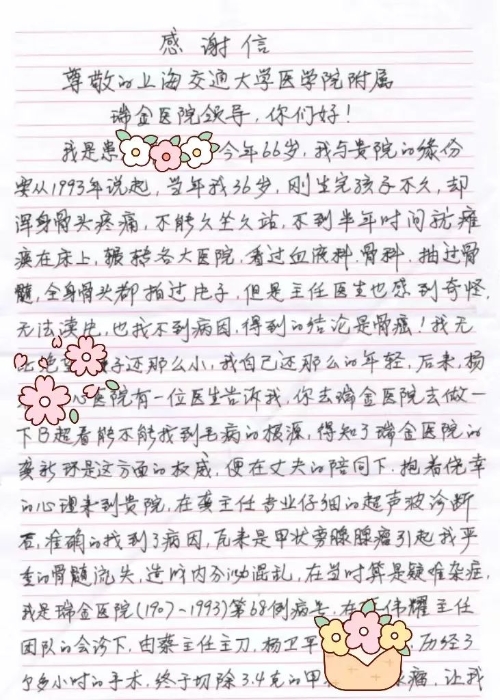 感谢信
尊敬的上海交通大学医学院附属
瑞金医院领导,你们好!
我是患 今年66岁,我与贵院的缘份
要从1993年说起,当年我36岁,刚生完孩子不久,却
浑身骨头疼痛,不能久坐久站,不到半年时间就瘫
痪在床上,辗转各大医院,看过血液科,骨科,抽过骨
髓,全身骨头都拍过片子,但是主任医生也感到奇怪,
无法读片,也找不到病因,得到的结论是骨癌!我无
子还那么小,我自己还那么的年轻,后来,杨
心医院有一位医生告诉我,你去瑞金医院去做一
下B超看能不能找到毛病的根源,得知了瑞金医院的
龚新环是这方面的权威,便在丈夫的陪同下,抱着侥幸
的心理来到贵院,在龚主任专业仔细的超声波诊断
看,准确的找到了病因,瓦来是甲状旁腺腺瘤引起我严
重的骨髓流失,造成内分泌混乱,在当时算是疑难杂症,
我是瑞金医院(1907~1993)第68例病 在 伟耀主任
团队的会诊下,由蔡主任主刀,杨卫平 历经3
个多小时的手术,终于切除3.4克的甲 瘤,让我